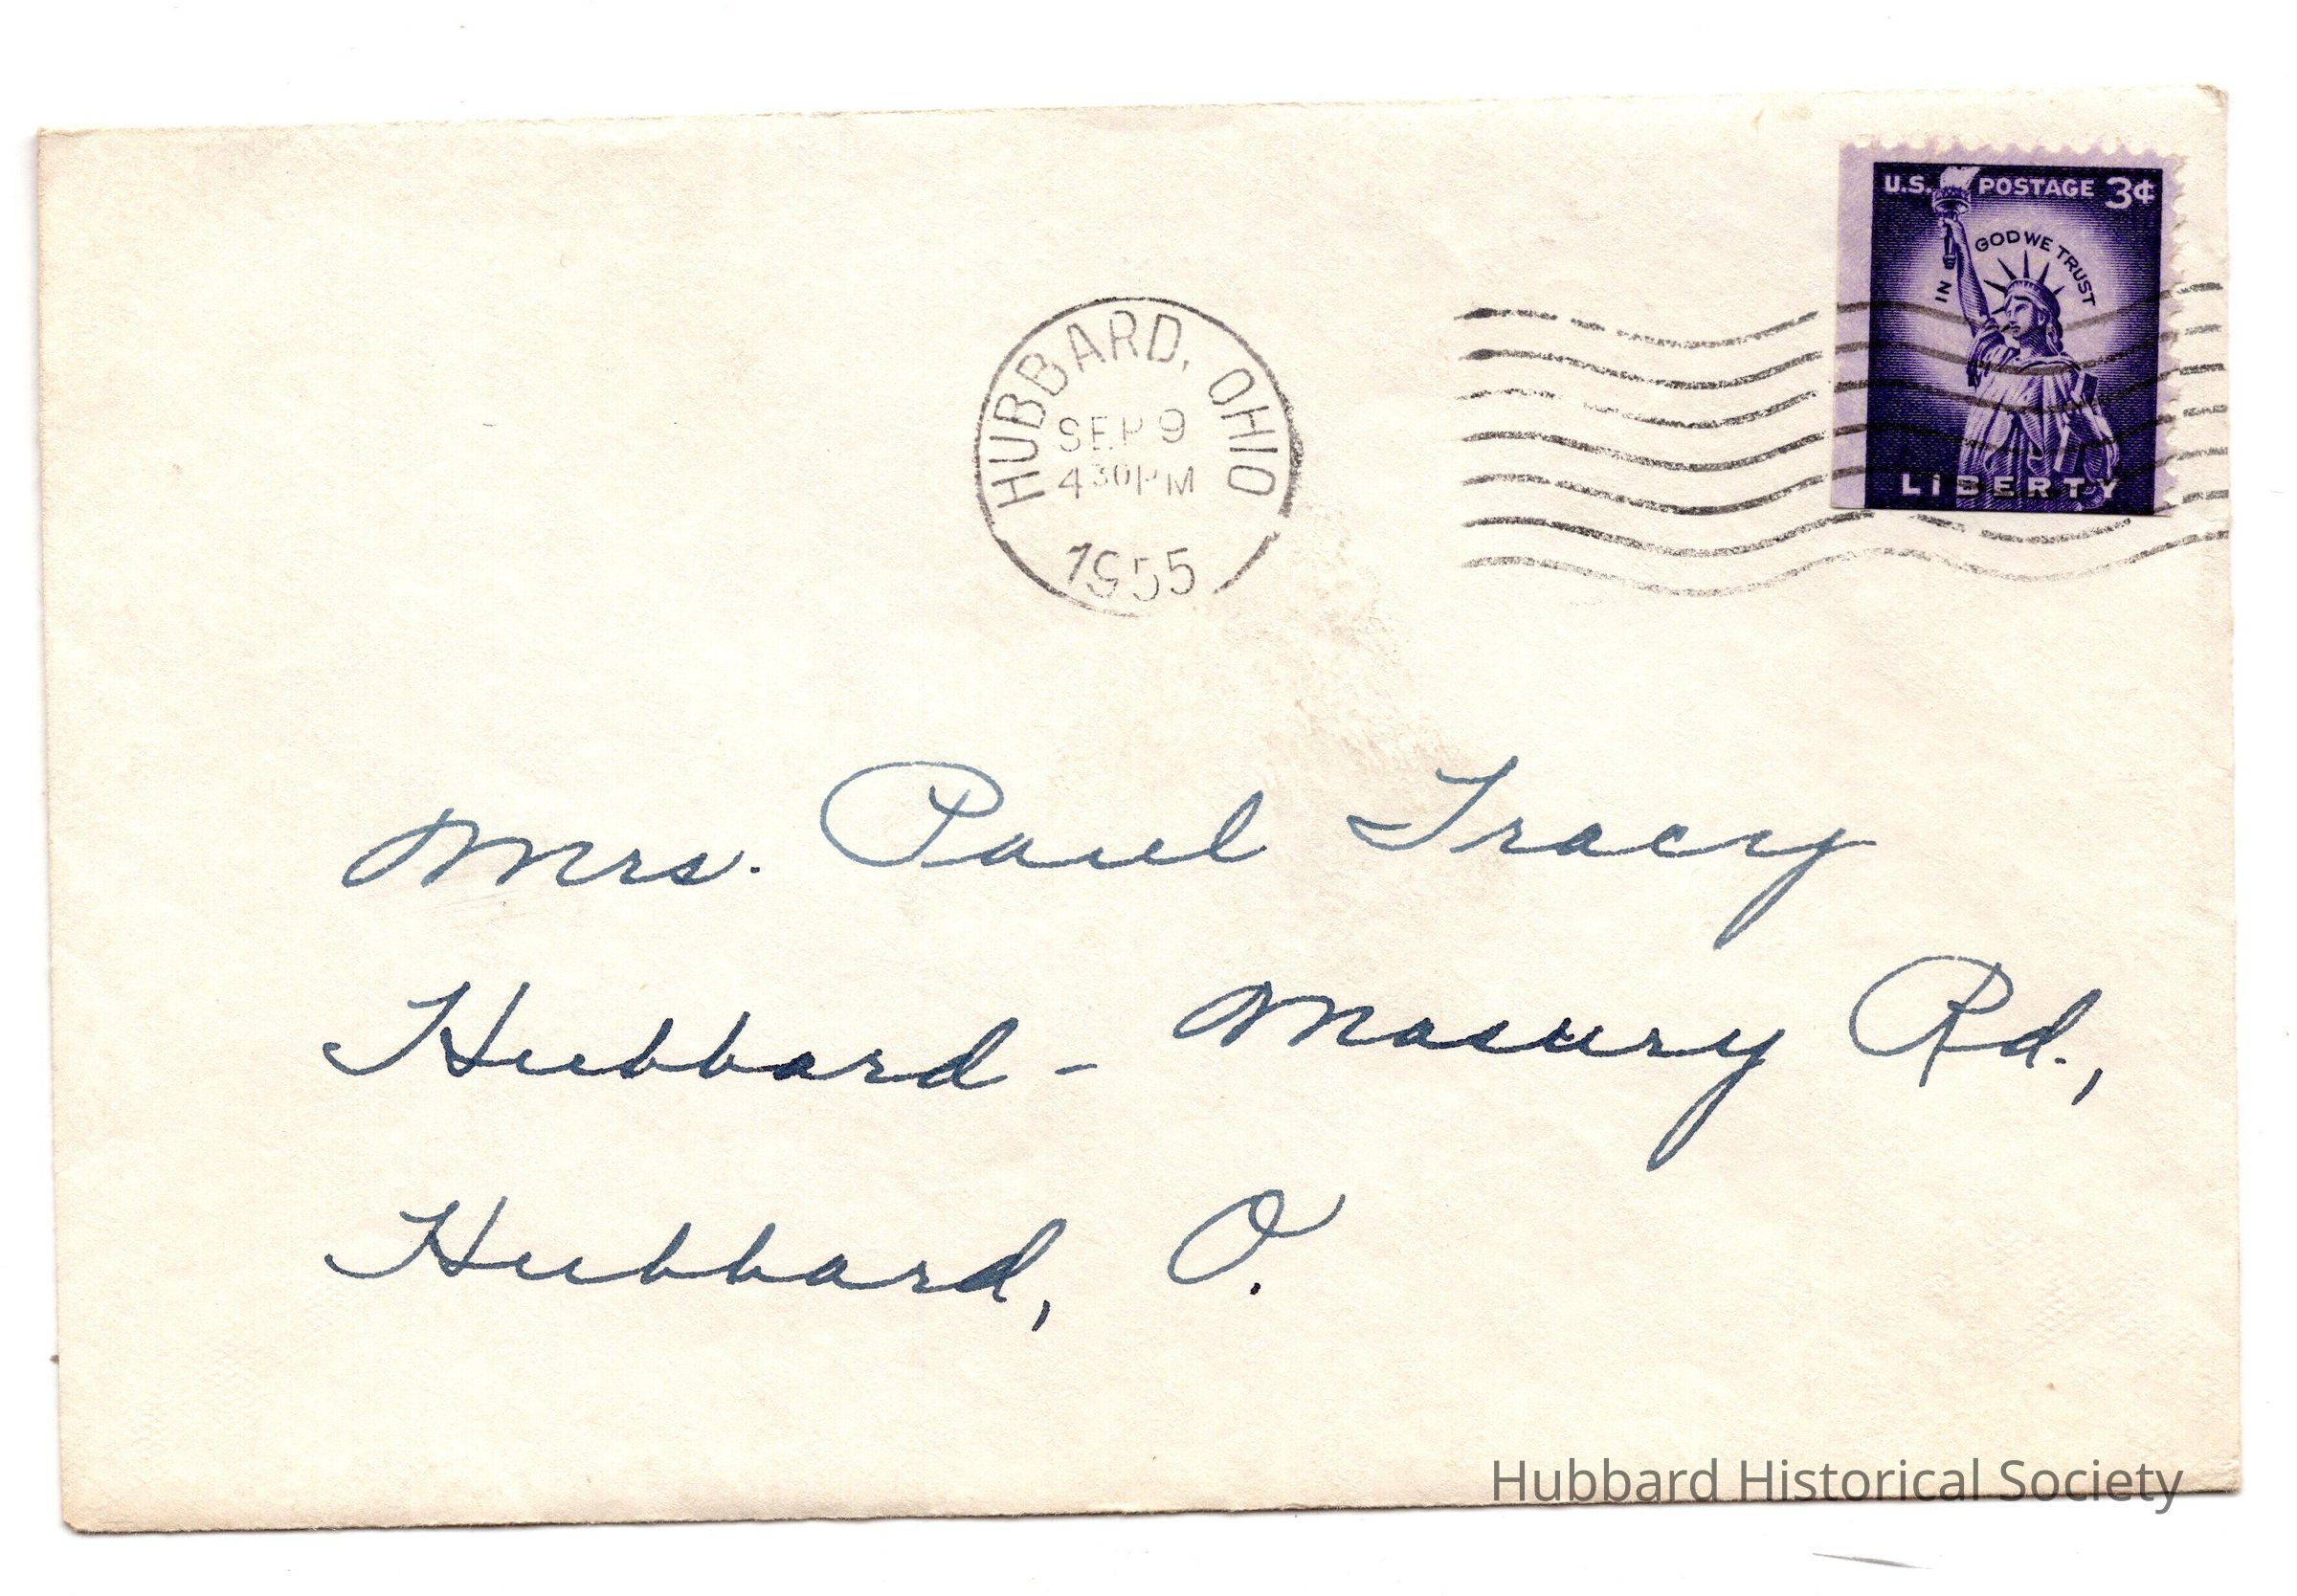 U.S. POSTAGE 3¢
IN GOD WE TRUST
LIBERTY
HUBBARD, OHIO
SEP 9
4 30 PM
1955
Mrs. Paul Tracy
Hubbard - Masury Rd.,
Hubbard, O.
Hubbard Historical Society